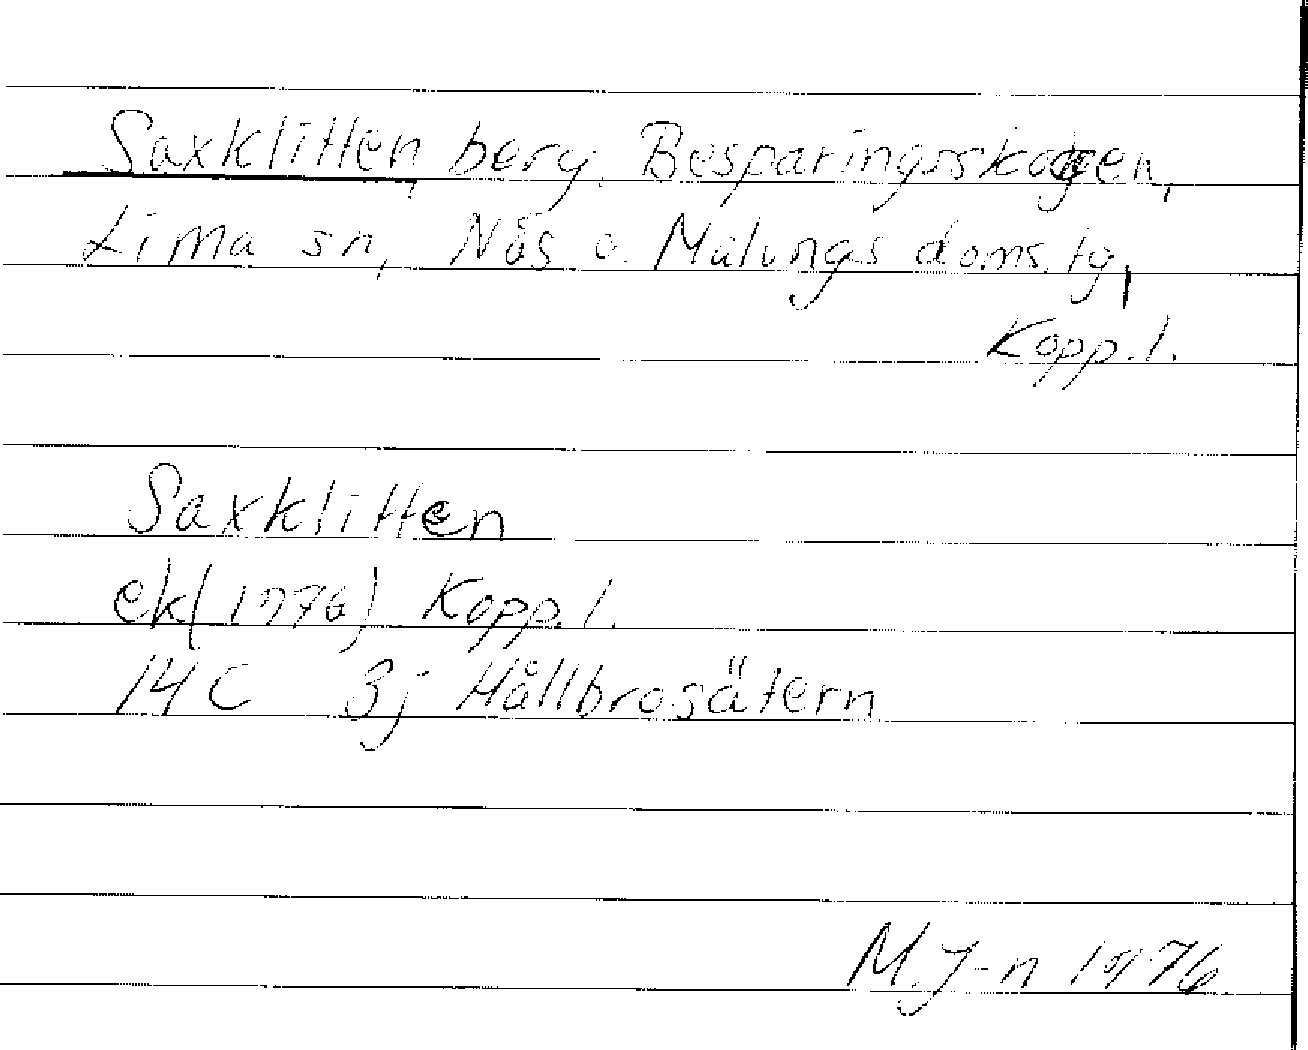 Saxklitten, berg, Besparingsskogen,
Lima sn, Nås o. Malungs doms. tg,
Kopp. l.
Saxklitten
ek (1976) Kopp. l.
14 C 3j Hållbrosätern
M. J-n 1976